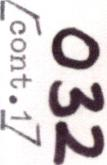 032
[cont.]